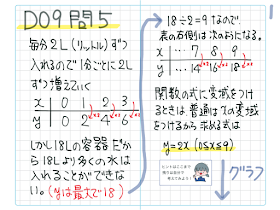 D09問5
毎分2L(リットル)ずつ
入れるので1分ごとに2L
ずつ増えていく
x 0 1 2 3
y 0 2 4 6
しかし18Lの容器だか
ら18Lより多くの水は
入れることができな
い。(yは最大で18)
18÷2=9なので、
表の右側は次のようになる。
x … 7 8 9
y … 14 16 18
関数の式に変域をつけ
るときは普通はxの変域
をつけるから求める式は
y=2x (0≤x≤9)
グラフ